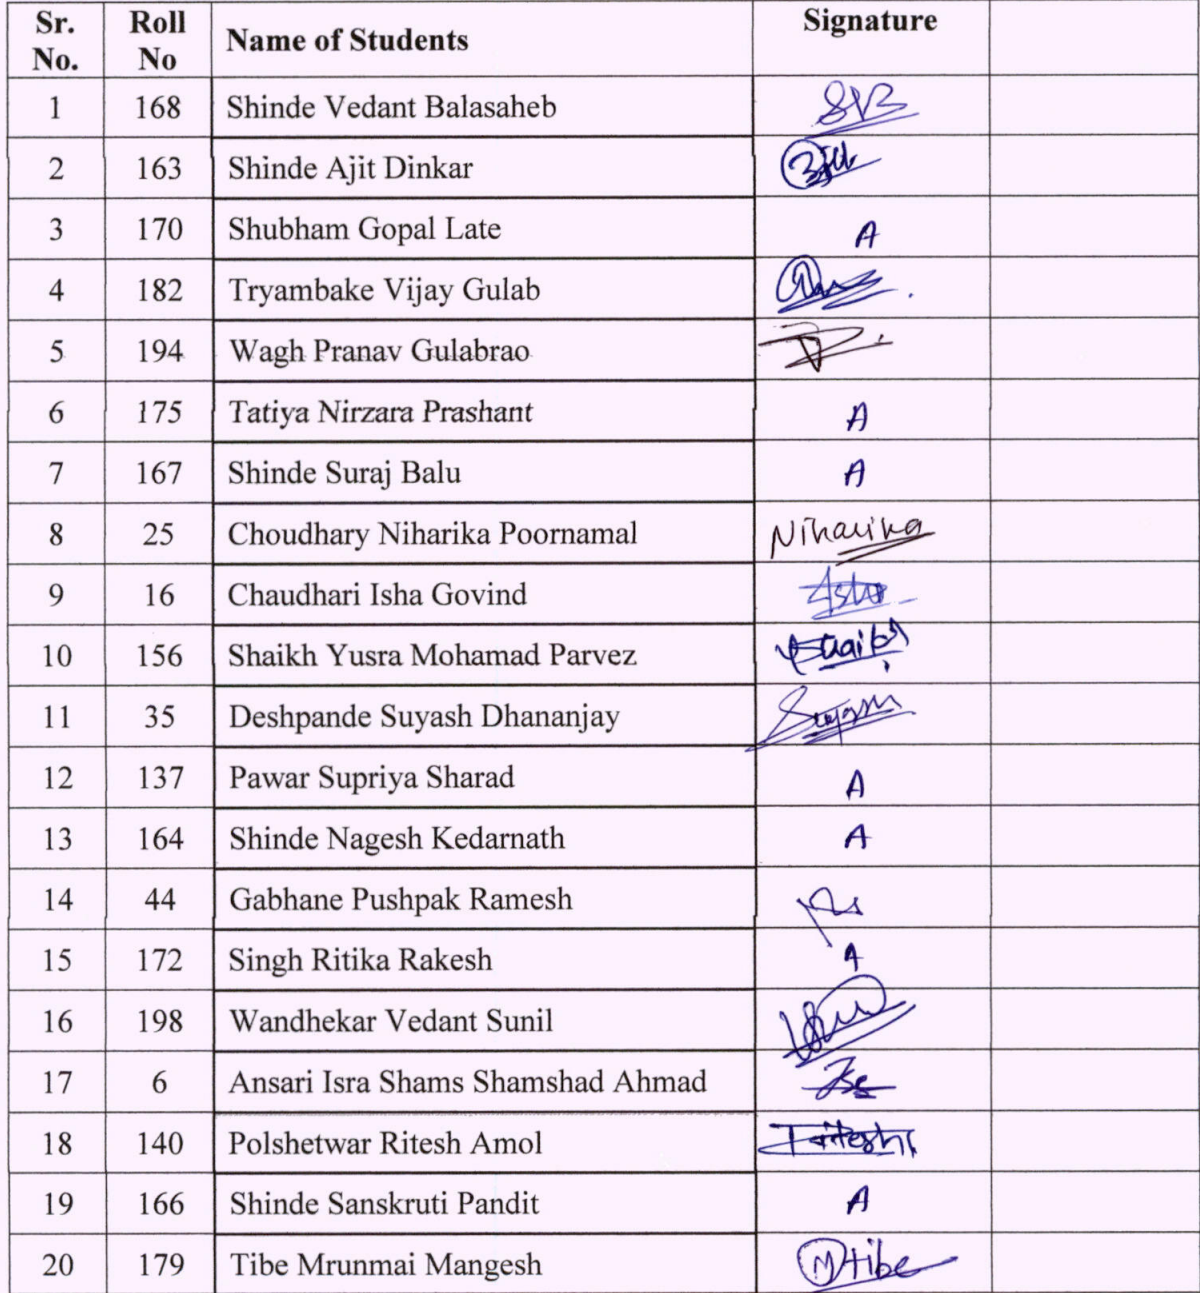 Sr. No. Roll No Name of Students Signature
1 168 Shinde Vedant Balasaheb SVB
2 163 Shinde Ajit Dinkar
3 170 Shubham Gopal Late A
4 182 Tryambake Vijay Gulab
5 194 Wagh Pranav Gulabrao
6 175 Tatiya Nirzara Prashant A
7 167 Shinde Suraj Balu A
8 25 Choudhary Niharika Poornamal Niharika
9 16 Chaudhari Isha Govind Isha
10 156 Shaikh Yusra Mohamad Parvez
11 35 Deshpande Suyash Dhananjay Suyash
12 137 Pawar Supriya Sharad A
13 164 Shinde Nagesh Kedarnath A
14 44 Gabhane Pushpak Ramesh
15 172 Singh Ritika Rakesh A
16 198 Wandhekar Vedant Sunil
17 6 Ansari Isra Shams Shamshad Ahmad
18 140 Polshetwar Ritesh Amol
19 166 Shinde Sanskruti Pandit A
20 179 Tibe Mrunmai Mangesh Mtibe